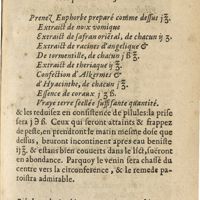 Prenez Euphorbe preparé comme dessus j ℥.
Extraict de noix vomique
Extraict de safran oriẽtal, de chacun ij ℥.
Extraict de racines d'angelique &
De tormentille, de chacun j ℥ ß.
Extraict de theriaque ij ℥.
Confection d'Alkermes &
d'Hyacinthe, de chacun j ℥.
Essence de coraux j ʒ ß.
Vraye terre seellée suffisante quantité.
& les reduisez en consistence de pilules: la prise
sera j ℈ ß. Ceux qui seront attaints & frappez
de peste, en prendront le matin mesme dose que
dessus, beuront incontinent apres eau beniste
ij ℥ & estans bien couuerts dans le lict, suëront
en abondance. Parquoy le venin sera chassé du
centre vers la circonference, & le remede pa-
roistra admirable.